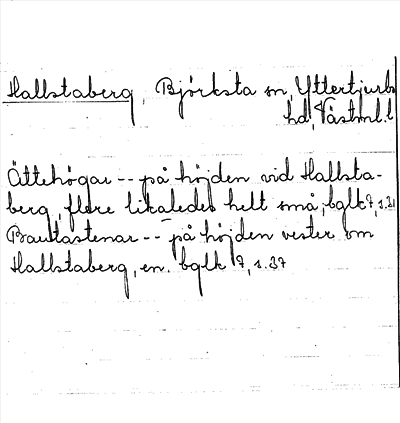 Hallstaberg, Björksta sn, Yttertjurbo
hd, Västml. l
Ättehögar -- på höjden vid Hallsta-
berg, flere likaledes helt små, bglk 7, s. 31
Bautastenar -- på höjden vester om
Hallstaberg, en. bglk 7, s. 37